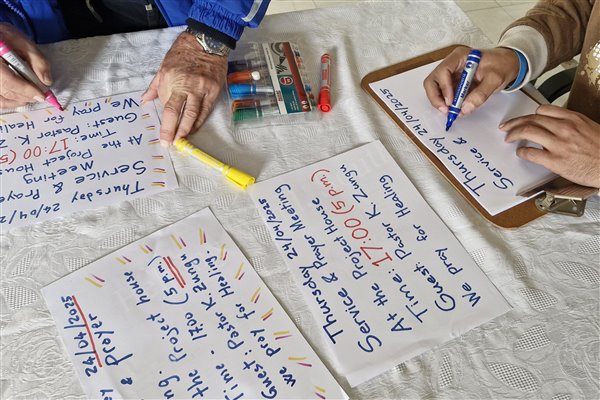 Thursday 24/04/
Service & Praye
Meeting
At the Project Hous
Time: 17:00 (5
Guest: Pastor K. Z
We pray for Heali
Thursday 24/04/2025
Service &
Thursday 24/04/2025
Service & Prayer Meeting
At the Project House
Time: 17:00 (5 p.m)
Guest: Pastor K. Zungu
We pray for Healing
24/04/2025
& Prayer
ng.
the Project house
Time - 17:00 (5pm)
Guest: Pastor K Zungu
we pray for Healing.